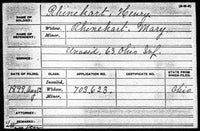 NAME OF SOLDIER: Rhinehart, Henry
NAME OF DEPENDENT: Widow, Rhinehart, Mary
Minor,
SERVICE: Unassd, 63 Ohio Inf.
DATE OF FILING. CLASS. APPLICATION NO. CERTIFICATE NO. STATE FROM WHICH FILED.
Invalid,
1899 Aug Widow, 703,623 Ohio
Minor,
ATTORNEY:
REMARKS: